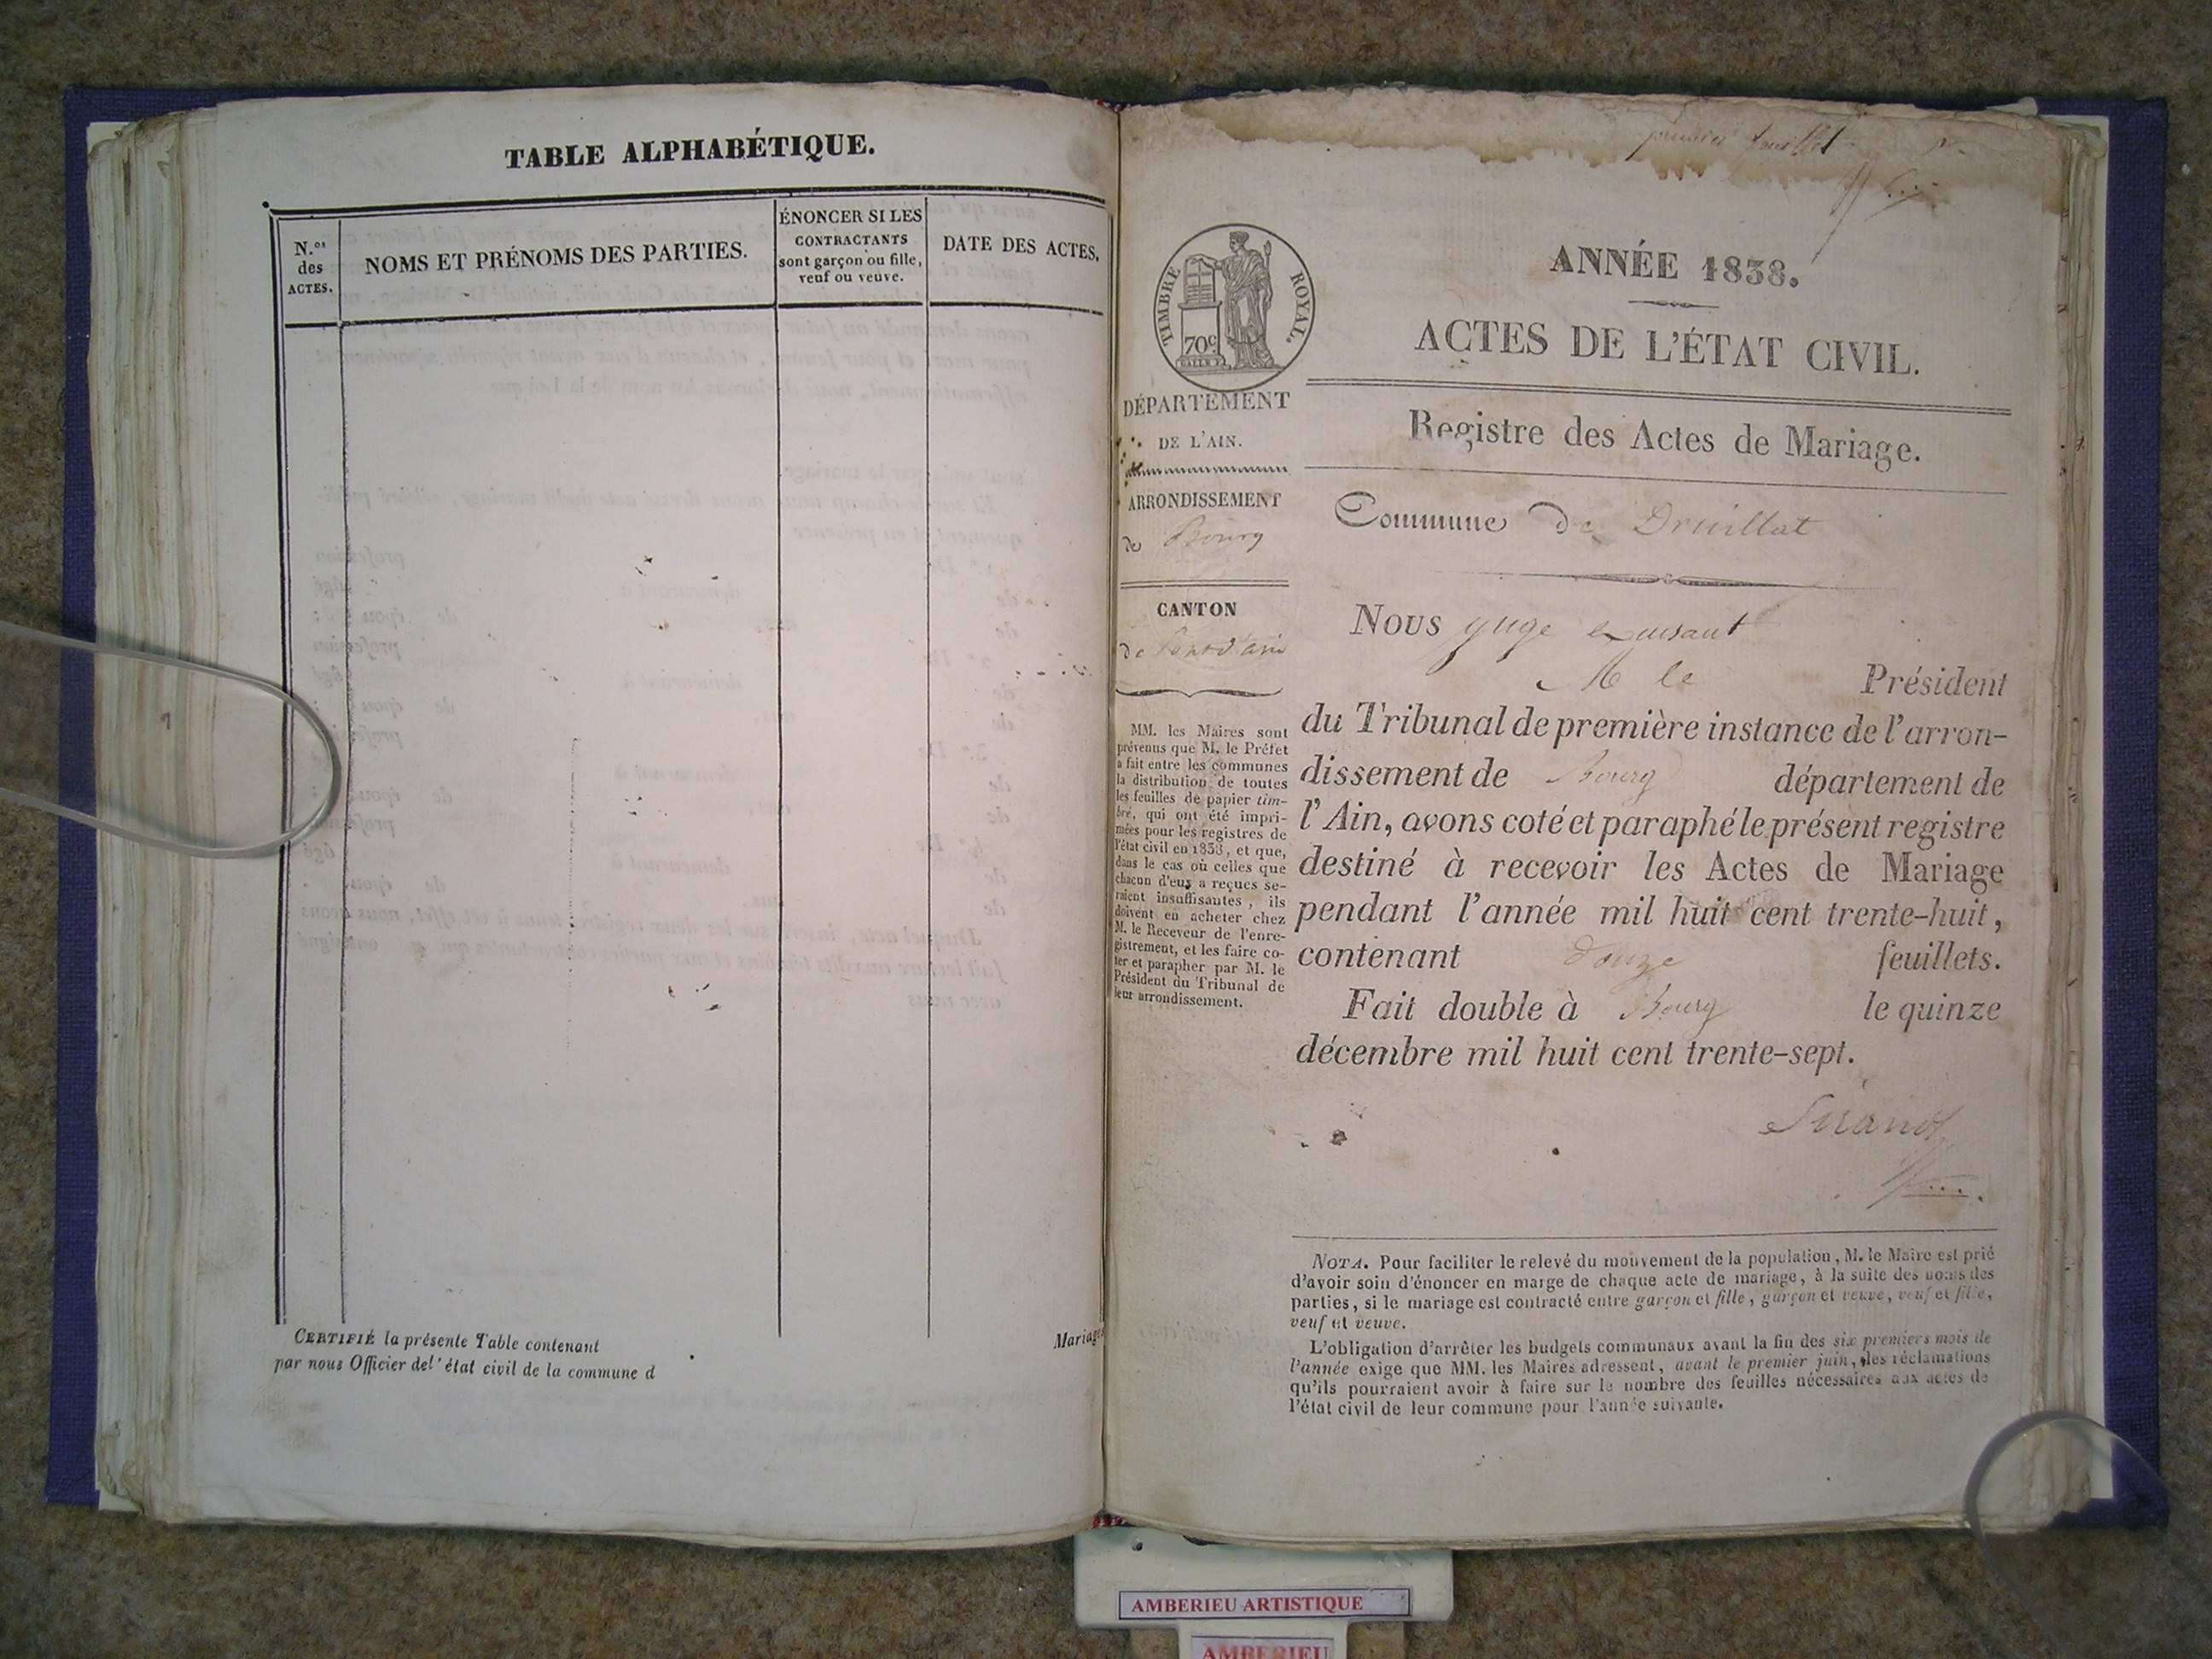 TABLE ALPHABÉTIQUE.
N.os
des
ACTES.
NOMS ET PRÉNOMS DES PARTIES.
ÉNONCER SI LES
CONTRACTANTS
sont garçon ou fille,
veuf ou veuve.
DATE DES ACTES.
CERTIFIÉ la présente Table contenant
par nous Officier de l'état civil de la commune d
Mariages
premier feuillet
TIMBRE ROYAL.
70c
ANNÉE 1838.
ACTES DE L'ÉTAT CIVIL.
Registre des Actes de Mariage.
DÉPARTEMENT
DE L'AIN.
ARRONDISSEMENT
de Bourg
CANTON
de Pont d'ain
MM. les Maires sont
prévenus que M. le Préfet
a fait entre les communes
la distribution de toutes
les feuilles de papier tim-
bré, qui ont été impri-
mées pour les registres de
l'état civil en 1838, et que,
dans le cas où celles que
chacun d'eux a reçues se-
raient insuffisantes, ils
doivent en acheter chez
M. le Receveur de l'enre-
gistrement, et les faire co-
ter et parapher par M. le
Président du Tribunal de
leur arrondissement.
Commune de Druillat
Nous juge
M le Président
du Tribunal de première instance de l'arron-
dissement de Bourg département de
l'Ain, avons coté et paraphé le présent registre
destiné à recevoir les Actes de Mariage
pendant l'année mil huit cent trente-huit,
contenant douze feuillets.
Fait double à Bourg le quinze
décembre mil huit cent trente-sept.
NOTA. Pour faciliter le relevé du mouvement de la population, M. le Maire est prié
d'avoir soin d'énoncer en marge de chaque acte de mariage, à la suite des noms des
parties, si le mariage est contracté entre garçon et fille, garçon et veuve, veuf et fille,
veuf et veuve.
L'obligation d'arrêter les budgets communaux avant la fin des six premiers mois de
l'année exige que MM. les Maires adressent, avant le premier juin, les réclamations
qu'ils pourraient avoir à faire sur le nombre des feuilles nécessaires aux actes de
l'état civil de leur commune pour l'année suivante.
AMBERIEU ARTISTIQUE
AMBERIEU